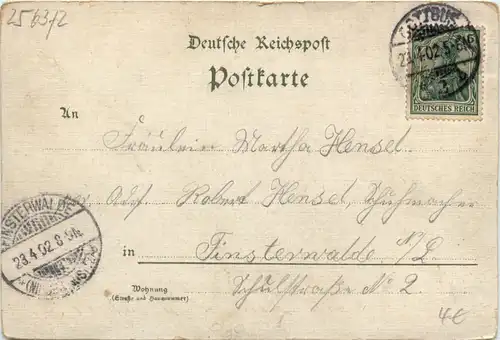 2563f2
COTTBUS
23.4.02.5-6N.
Deutsche Reichspost
Postkarte
DEUTSCHES REICH
An
Fräulein Martha Hensel
Adr. Robert Hensel, Schuhmacher
FINSTERWALDE
23.4.02.8-9N.
in Finsterwalde N/L.
Schulstraße No 2.
Wohnung
(Straße und Hausnummer)
4€